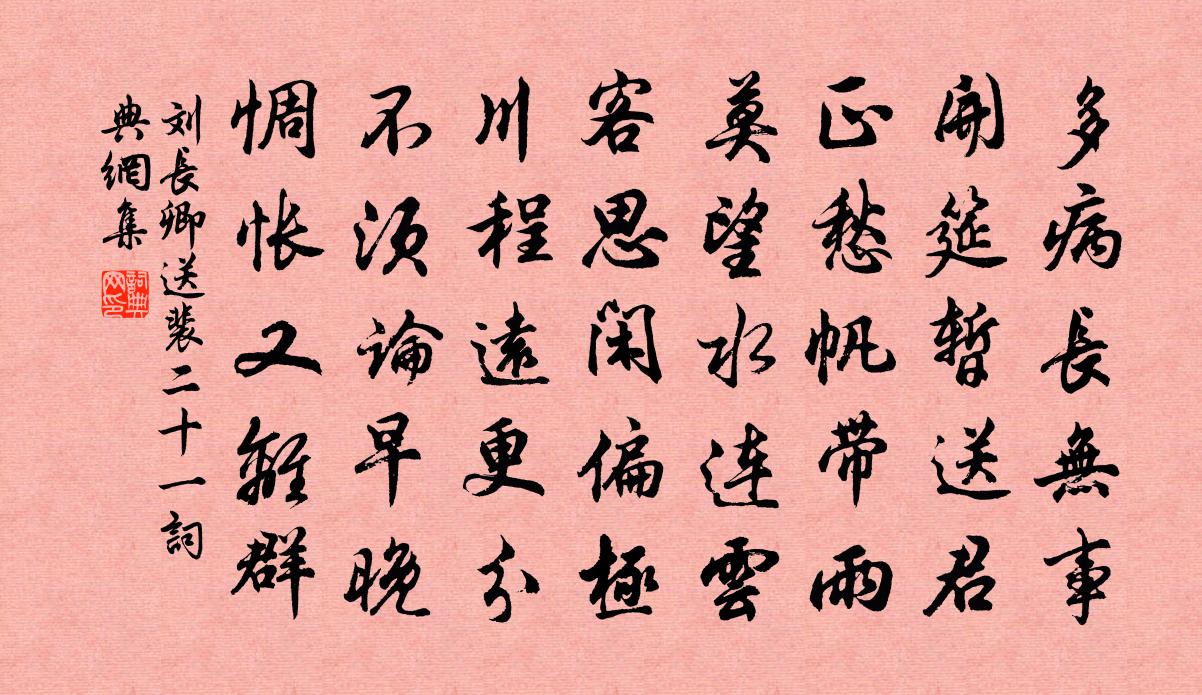 多病長無事
開筵暫送君
正愁帆带雨
莫望水連雲
客思閑偏極
川程遠更分
不須論早晚
惆悵又離群
刘長卿送裴二十一詞
典網集
詞典网印